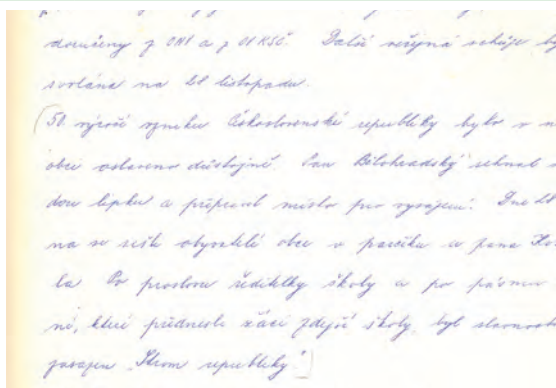 doručeny z ONV a z OV KSČ. Další veřejná schůze by
svolána na 28 listopadu.
(50. výročí vzniku Československé republiky bylo v n
obci oslaveno důstojně. Pan Bělohradský sehnal
dou lipku a připravil místo pro vysazení. Dne 28
na se sešli obyvatelé obce v parčíku u pana
la Po proslovu ředitelky školy a po pásmu
ní, které přednesli žáci zdejší školy, byl slavnost
zasazen „Strom republiky".]